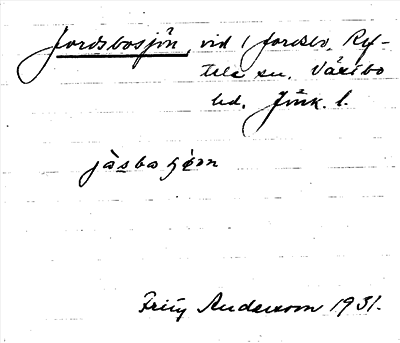 Jordsbosjön, vid Jordsb. Ryd-
tela sn. Vartbo
hd. Jönk. l.
jàsba ʃön
Fritz Anderson 1931.